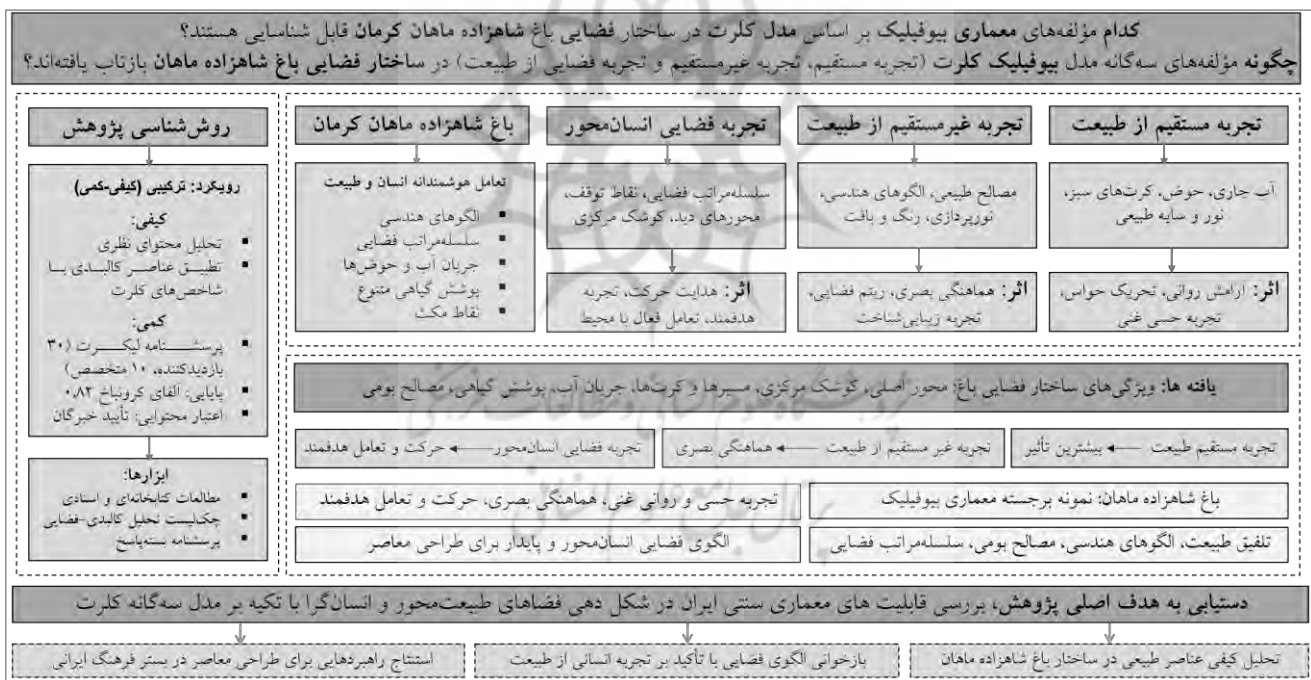 کدام مؤلفه‌های معماری بیوفیلیک بر اساس مدل کلرت در ساختار فضایی باغ شاهزاده ماهان کرمان قابل شناسایی هستند؟
چگونه مؤلفه‌های سه‌گانه مدل بیوفیلیک کلرت (تجربه مستقیم، تجربه غیرمستقیم و تجربه فضایی از طبیعت) در ساختار فضایی باغ شاهزاده ماهان بازتاب یافته‌اند؟
تجربه مستقیم از طبیعت
آب جاری، حوض، کرت‌های سبز،
نور و سایه طبیعی
اثر: آرامش روانی، تحریک حواس،
تجربه حسی غنی
تجربه غیرمستقیم از طبیعت
مصالح طبیعی، الگوهای هندسی،
نورپردازی، رنگ و بافت
اثر: هماهنگی بصری، ریتم فضایی،
تجربه زیبایی‌شناخت
تجربه فضایی انسان‌محور
سلسله‌مراتب فضایی، نقاط توقف،
محورهای دید، کوشک مرکزی
اثر: هدایت حرکت، تجربه
هدفمند، تعامل فعال با محیط
باغ شاهزاده ماهان کرمان
تعامل هوشمندانه انسان و طبیعت
▪ الگوهای هندسی
▪ سلسله‌مراتب فضایی
▪ جریان آب و حوض‌ها
▪ پوشش گیاهی متنوع
▪ نقاط مکث
روش‌شناسی پژوهش
رویکرد: ترکیبی (کیفی-کمی)
کیفی:
▪ تحلیل محتوای نظری
▪ تطبیق عناصر کالبدی با
شاخص‌های کلرت
کمی:
▪ پرسشنامه لیکرت (۳۰
بازدیدکننده، ۱۰ متخصص)
▪ پایایی: آلفای کرونباخ ۰.۸۲
▪ اعتبار محتوایی: تأیید خبرگان
ابزارها:
▪ مطالعات کتابخانه‌ای و اسنادی
▪ چک‌لیست تحلیل کالبدی-فضایی
▪ پرسشنامه بسته‌پاسخ
یافته ها: ویژگی‌های ساختار فضایی باغ: محور اصلی، کوشک مرکزی، مسیرها و کرت‌ها، جریان آب، پوشش گیاهی، مصالح بومی
تجربه مستقیم طبیعت ← بیشترین تأثیر
تجربه غیر مستقیم از طبیعت ← هماهنگی بصری
تجربه فضایی انسان‌محور ← حرکت و تعامل هدفمند
باغ شاهزاده ماهان: نمونه برجسته معماری بیوفیلیک
تجربه حسی و روانی غنی، هماهنگی بصری، حرکت و تعامل هدفمند
تلفیق طبیعت، الگوهای هندسی، مصالح بومی، سلسله‌مراتب فضایی
الگوی فضایی انسان‌محور و پایدار برای طراحی معاصر
پژوهشگاه علوم انسانی و مطالعات فرهنگی
پرتال جامع علوم انسانی
دستیابی به هدف اصلی پژوهش، بررسی قابلیت های معماری سنتی ایران در شکل دهی فضاهای طبیعت‌محور و انسان‌گرا با تکیه بر مدل سه‌گانه کلرت
تحلیل کیفی عناصر طبیعی در ساختار باغ شاهزاده ماهان
بازخوانی الگوی فضایی با تأکید بر تجربه انسانی از طبیعت
استنتاج راهبردهایی برای طراحی معاصر در بستر فرهنگ ایرانی